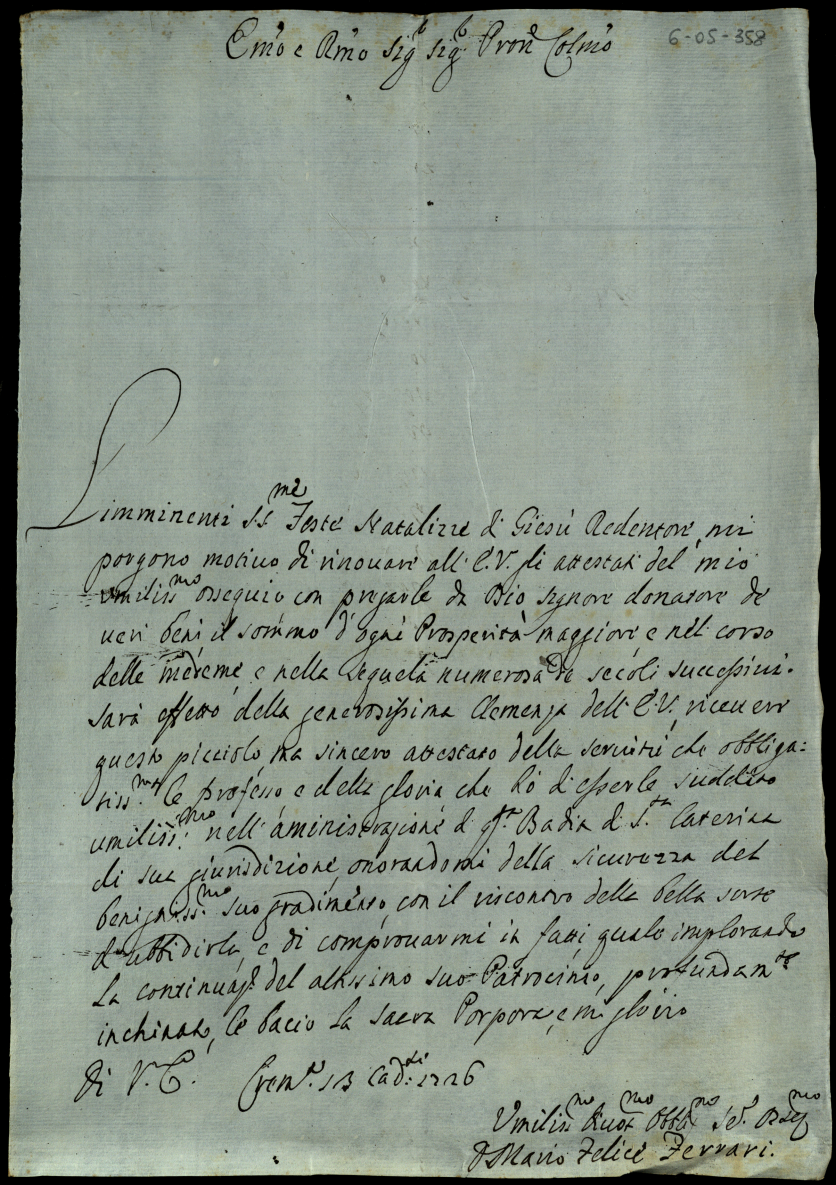 Em̃o e Rm̃o Sig.r Sig.r Pron Colmõ
6-05-358
L'imminenti SS.me Feste Natalizie di Giesù Redentore, mi
porgono motivo di rinouare all'E.V. gli attestati del mio
umiliss.mo ossequio con pregarle da Dio Signore donatore de
ueri beni il sommo d'ogni Prosperità maggiore e nel corso
delle medeme e nella seguela numerosa de secoli successiui.
Sarà effetto della generosissima Clemenza dell'E.V. riceuere
questo picciolo, ma sincero attestato della seruitù che obbliga=
tiss.ma le professo e della gloria che hò d'esserle suddito
umiliss.mo nell'aministrazione di q.ta Badia di S.ta Caterina
di sua giurisdizione, onorandomi della sicurezza del
benigniss.mo suo gradimento, con il riscontro della bella sorte
d'ubbidirla, e di comprouarmi in fatti quale implorando
la continuaz.e del altissimo suo Patrocinio, profundam.te
inchinato, le bacio la sacra Porpora, e mi glorio
Di V.E. Crem.a 13 Cad.ti 1726
Umiliss.mo Diuot.mo Obbl.mo Se.r Osseq.mo
Mario Felice Ferrari.